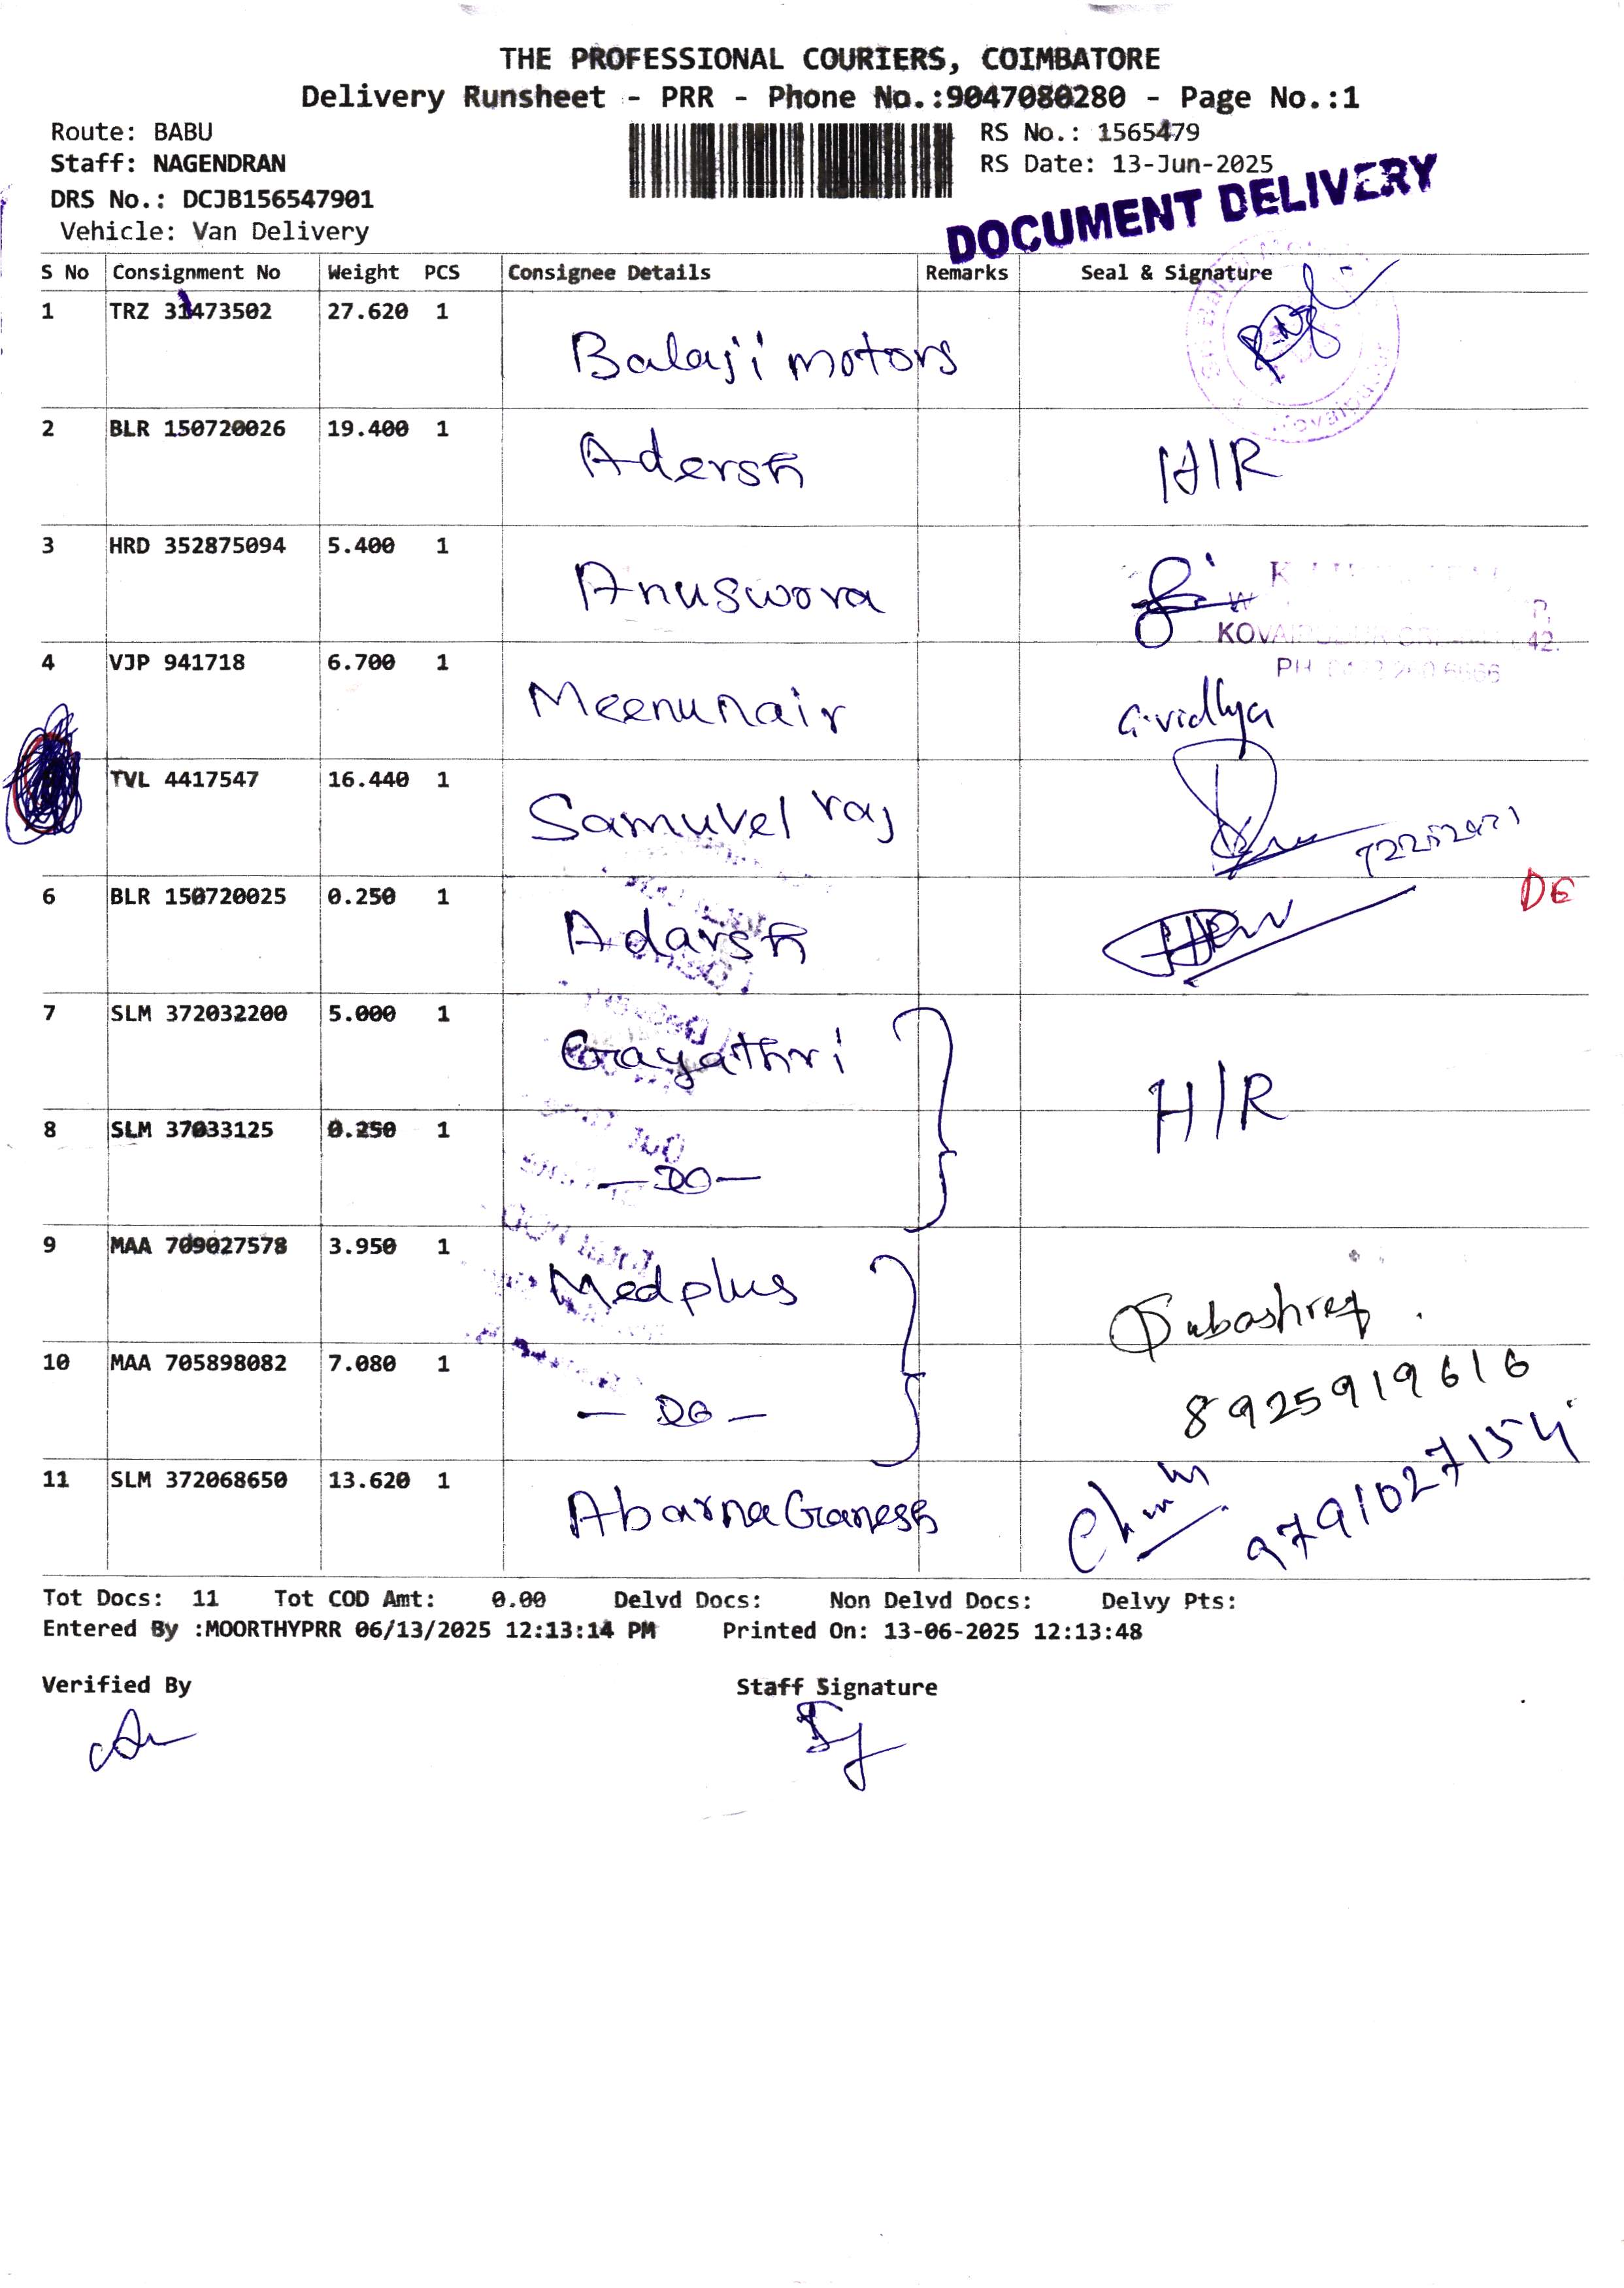 THE PROFESSIONAL COURIERS, COIMBATORE
Delivery Runsheet - PRR - Phone No.:9047080280 - Page No.:1
Route: BABU
RS No.: 1565479
Staff: NAGENDRAN
RS Date: 13-Jun-2025
DRS No.: DCJB156547901
Vehicle: Van Delivery
DOCUMENT DELIVERY
S No Consignment No Weight PCS Consignee Details Remarks Seal & Signature
1 TRZ 31473502 27.620 1 Balaji motors
2 BLR 150720026 19.400 1 Adersh H/R
3 HRD 352875094 5.400 1 Anuswora
4 VJP 941718 6.700 1 Meenunair G.vidhya
TVL 4417547 16.440 1 Samuvel raj
6 BLR 150720025 0.250 1 Adarsh
7 SLM 372032200 5.000 1 Gayathri H/R
8 SLM 37033125 0.250 1 —DO—
9 MAA 709027578 3.950 1 Medplus Subashree
10 MAA 705898082 7.080 1 — DO — 8925919616
11 SLM 372068650 13.620 1 Abarna Ganesh 9791027154
Tot Docs: 11 Tot COD Amt: 0.00 Delvd Docs: Non Delvd Docs: Delvy Pts:
Entered By :MOORTHYPRR 06/13/2025 12:13:14 PM Printed On: 13-06-2025 12:13:48
Verified By Staff Signature